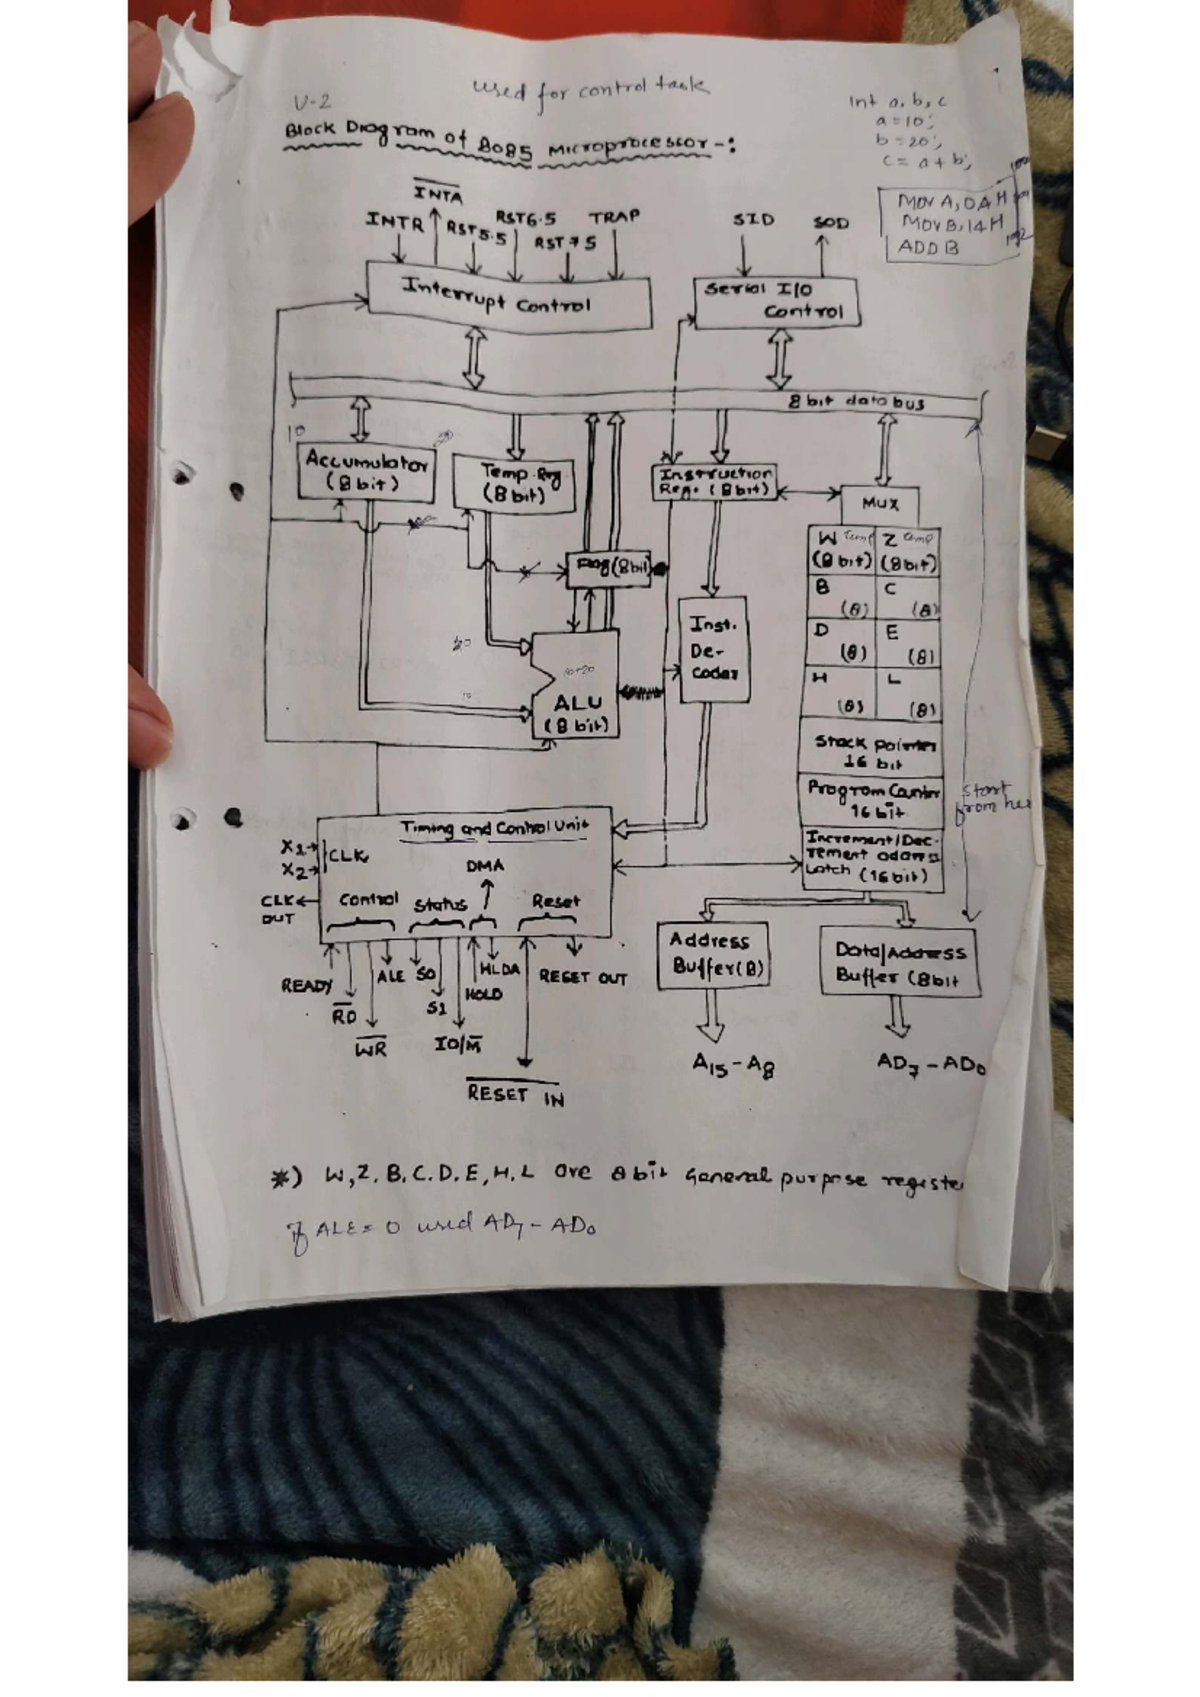 used for control task
U-2
Block Diagram of 8085 Microprocessor-:
Int a, b, c
a=10;
b=20;
c= a+b;
MOV A, 0AH
MOV B, 14H
ADD B
INTA
INTR
RST5.5
RST6.5
RST 7.5
TRAP
SID
SOD
Interrupt Control
Serial I/O
Control
8 bit data bus
10
Accumulator
(8 bit)
Temp. Reg
(8 bit)
Instruction
Reg. (8 bit)
MUX
Flag (8 bit)
W temp
(8 bit)
Z temp
(8 bit)
B
(8)
C
(8)
D
(8)
E
(8)
H
(8)
L
(8)
Inst.
De-
Coder
20
10
10+20
ALU
(8 bit)
Stack pointer
16 bit
Program Counter
16 bit
Increment/Dec-
rement address
Latch (16 bit)
start
from her
Timing and Control Unit
X1
X2
CLK
CLK
OUT
DMA
Control
Status
Reset
READY
RD
WR
ALE
S0
S1
IO/M
HOLD
HLDA
RESET OUT
RESET IN
Address
Buffer(8)
Data/Address
Buffer (8bit
A15-A8
AD7-AD0
*) W,Z,B,C,D,E,H,L are 8 bit General purpose registe
If ALE=0 used AD7-AD0